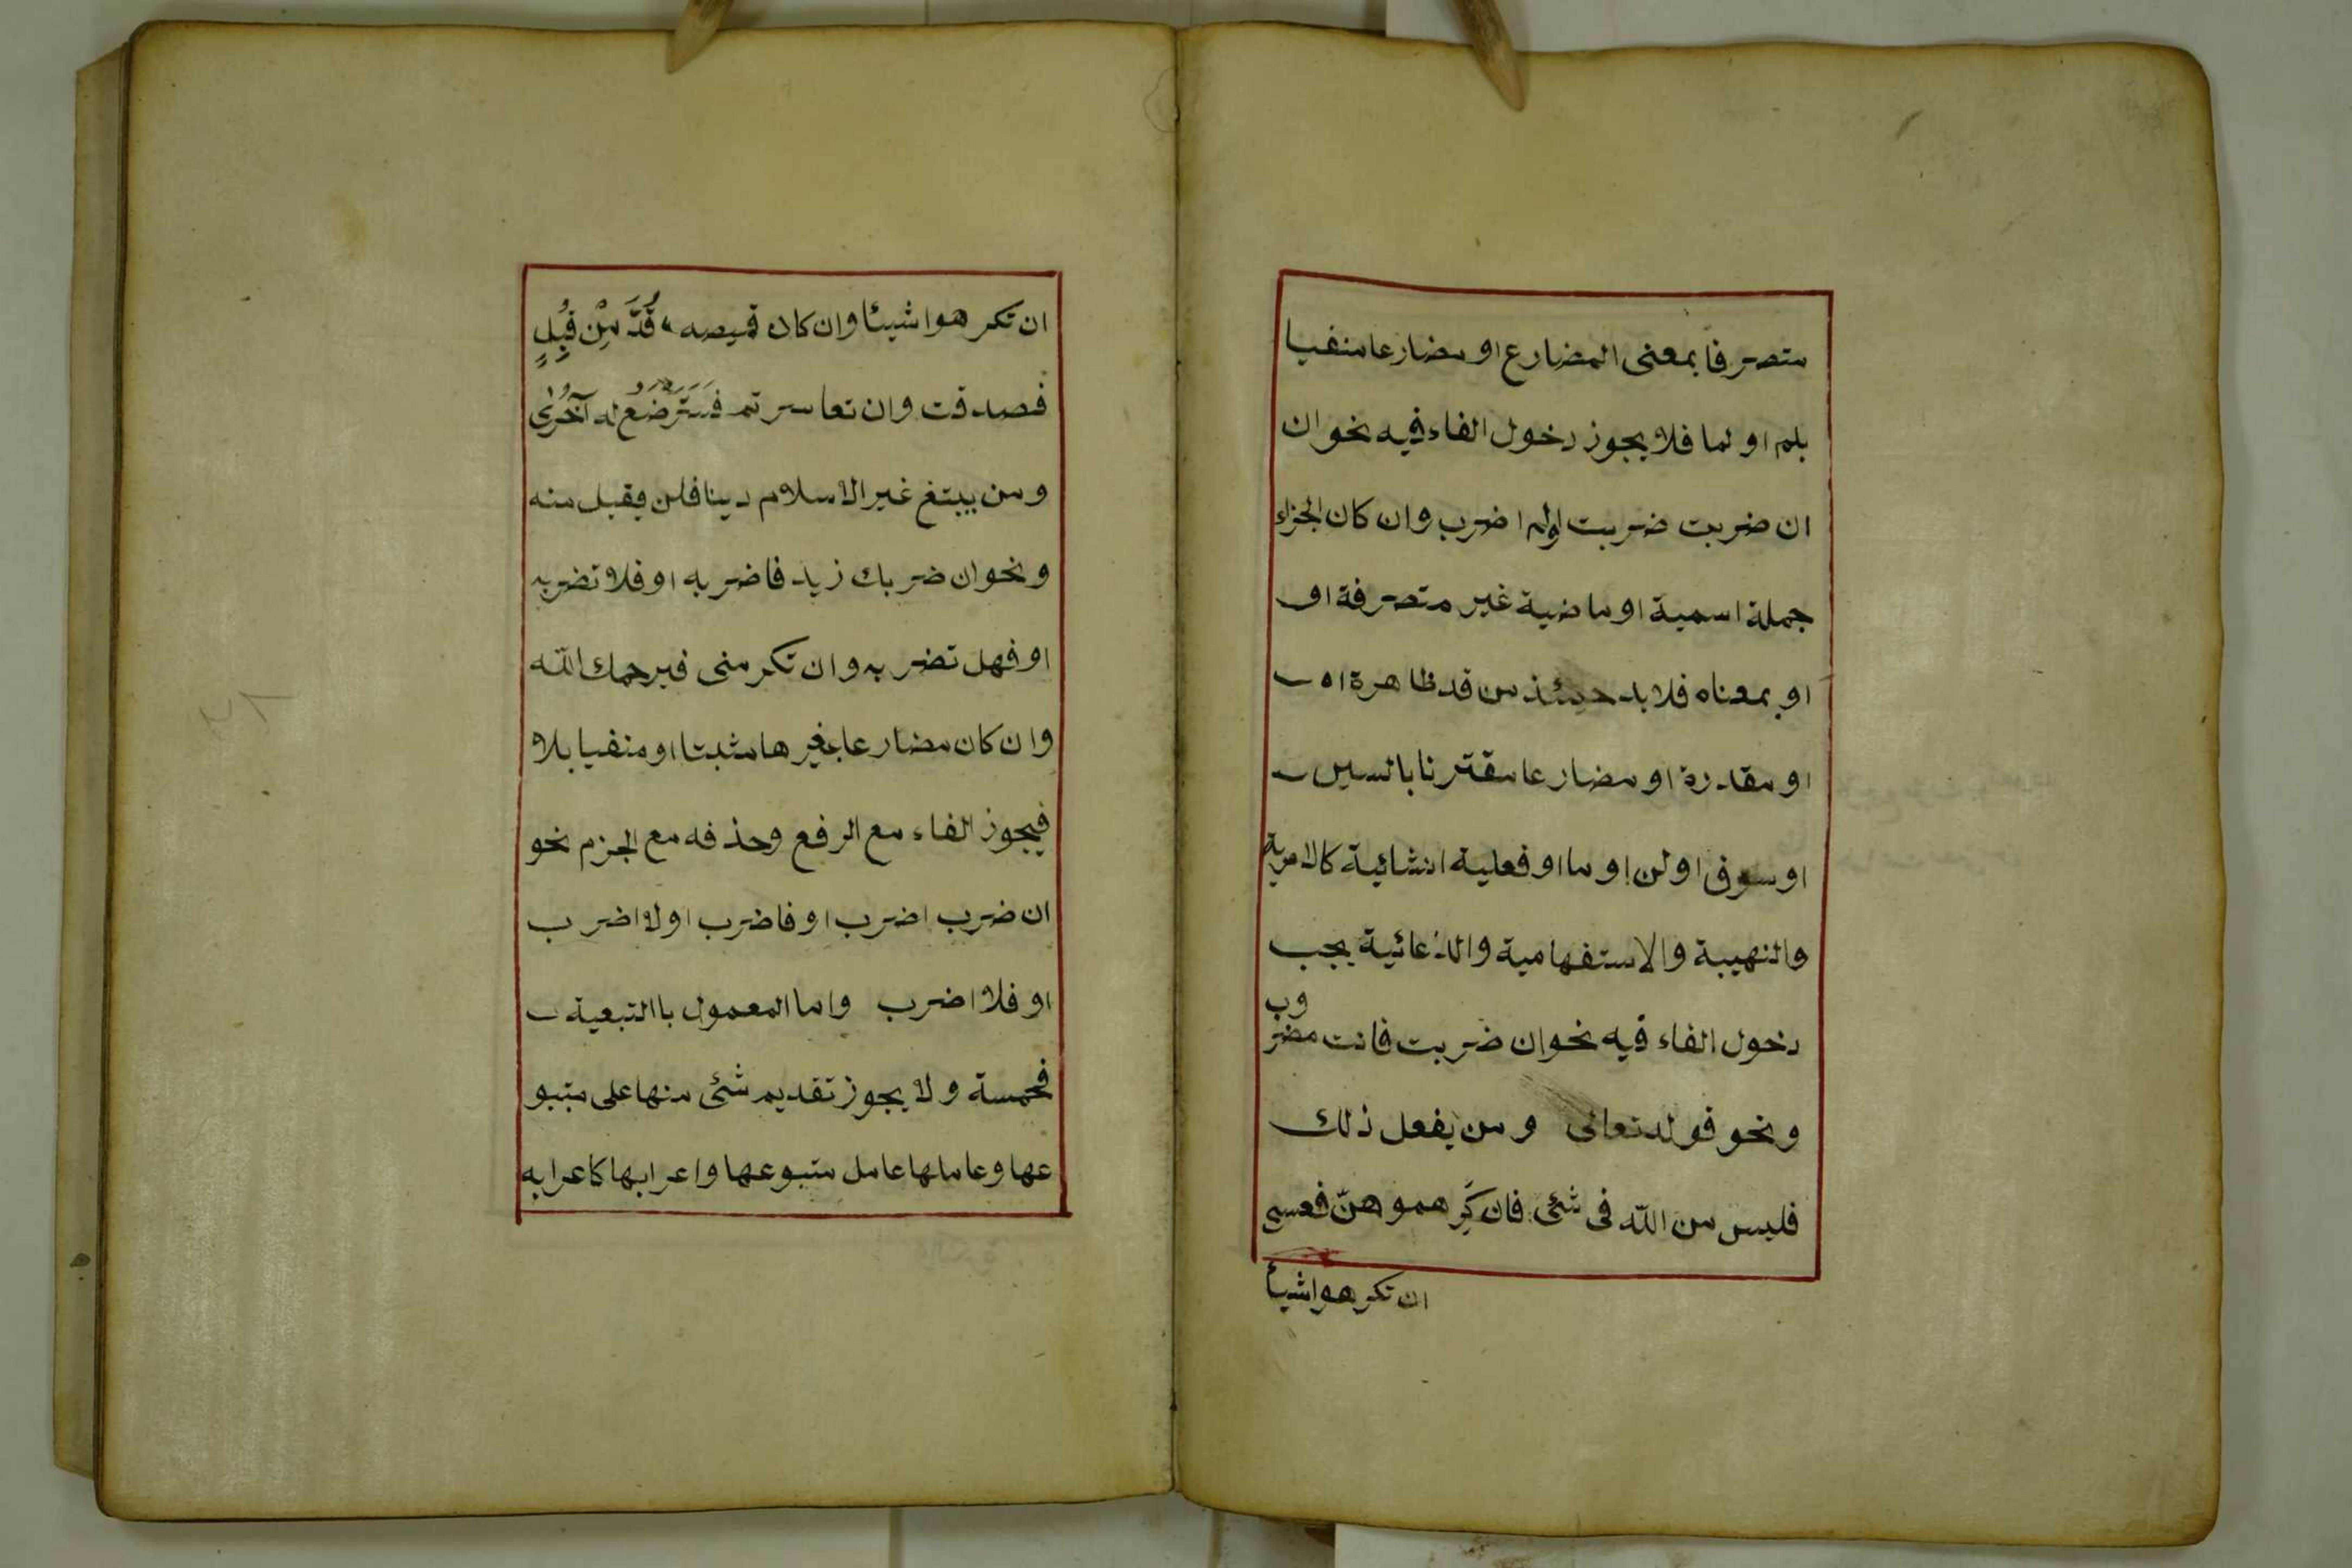 متصرفا بمعنى المضارع او مضارعا منفيا
بلم او لما فلا يجوز دخول الفاء فيه نحو ان
ان ضربت ضربت اولم اضرب وان كان الجزاء
جملة اسمية او ماضية غير متصرفة او
او بمعناه فلا بد حينئذ من قد ظاهرة اه
او مقدرة او مضارعا مقترنا بالسين
او سوف او لن او ما او فعلية انشائية كالامرية
والنهيية والاستفهامية والدعائية يجب
دخول الفاء فيه نحو ان ضربت فانت مضروب
ونحو قوله تعالى ومن يفعل ذلك
فليس من اللّه فى شئ فان كَرِهموهنّ فعسى
ان تكرهوا شيأ
ان تكرهوا شيئا وان كان قميصه قُدَّ مِنْ قُبُلٍ
فصدقت وان تعاسرتم فَسَتَرْضَعُ له آخُرٰى
ومن يبتغ غير الاسلام دينا فلن يقبل منه
ونحو ان ضربك زيد فاضربه او فلا تضربه
او فهل تضربه وان تكرمنى فيرحمك اللّه
وان كان مضارعا بغيرها مثبتا او منفيا بلا
فيجوز الفاء مع الرفع وحذفه مع الجزم نحو
ان ضرب اضرب او فاضرب اولا اضرب
او فلا اضرب واما المعمول باالتبعية
فخمسة ولا يجوز تقديم شئ منها على متبو
عها وعاملها عامل متبوعها واعرابها كاعرابه